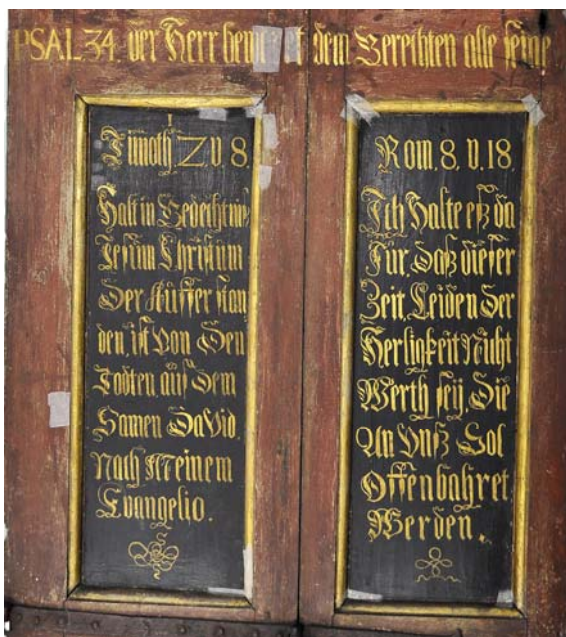 PSAL 34. der Herr bewaret dem Gerechten alle seine
Timoth. 2 V. 8.
Halt in Gedechtnuß
Jesum Christum
Der Auffer stan
den, ist Von Den
Todten, auß Dem
Samen DaVid,
Nach Meinem
Evangelio.
Rom. 8. V. 18
Ich Halte eß da
Für, Daß dieser
Zeit, Leiden Der
Herligkeit Nicht
Werth seÿ, Die
An Vnß Sol
Offenbahret
Werden.